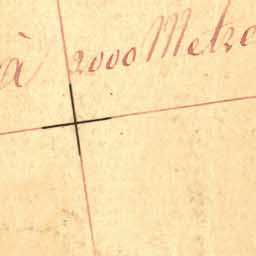 à 2000 Metre